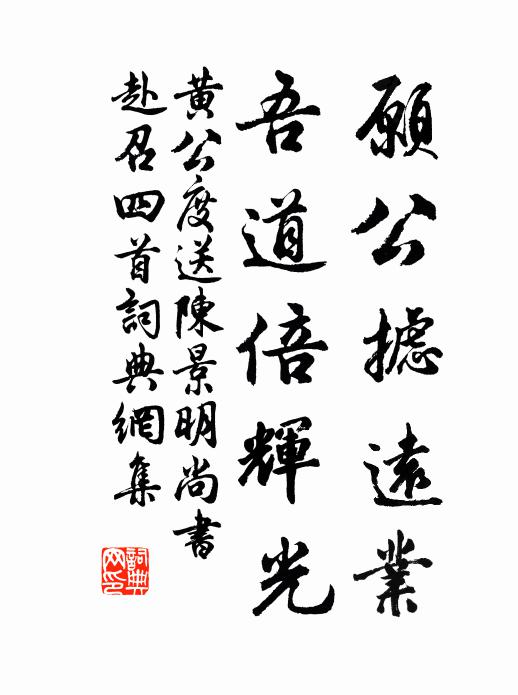 願公攄遠業
吾道倍輝光
黃公度送陳景明尚書
赴召四首詞典網集
詞典網印